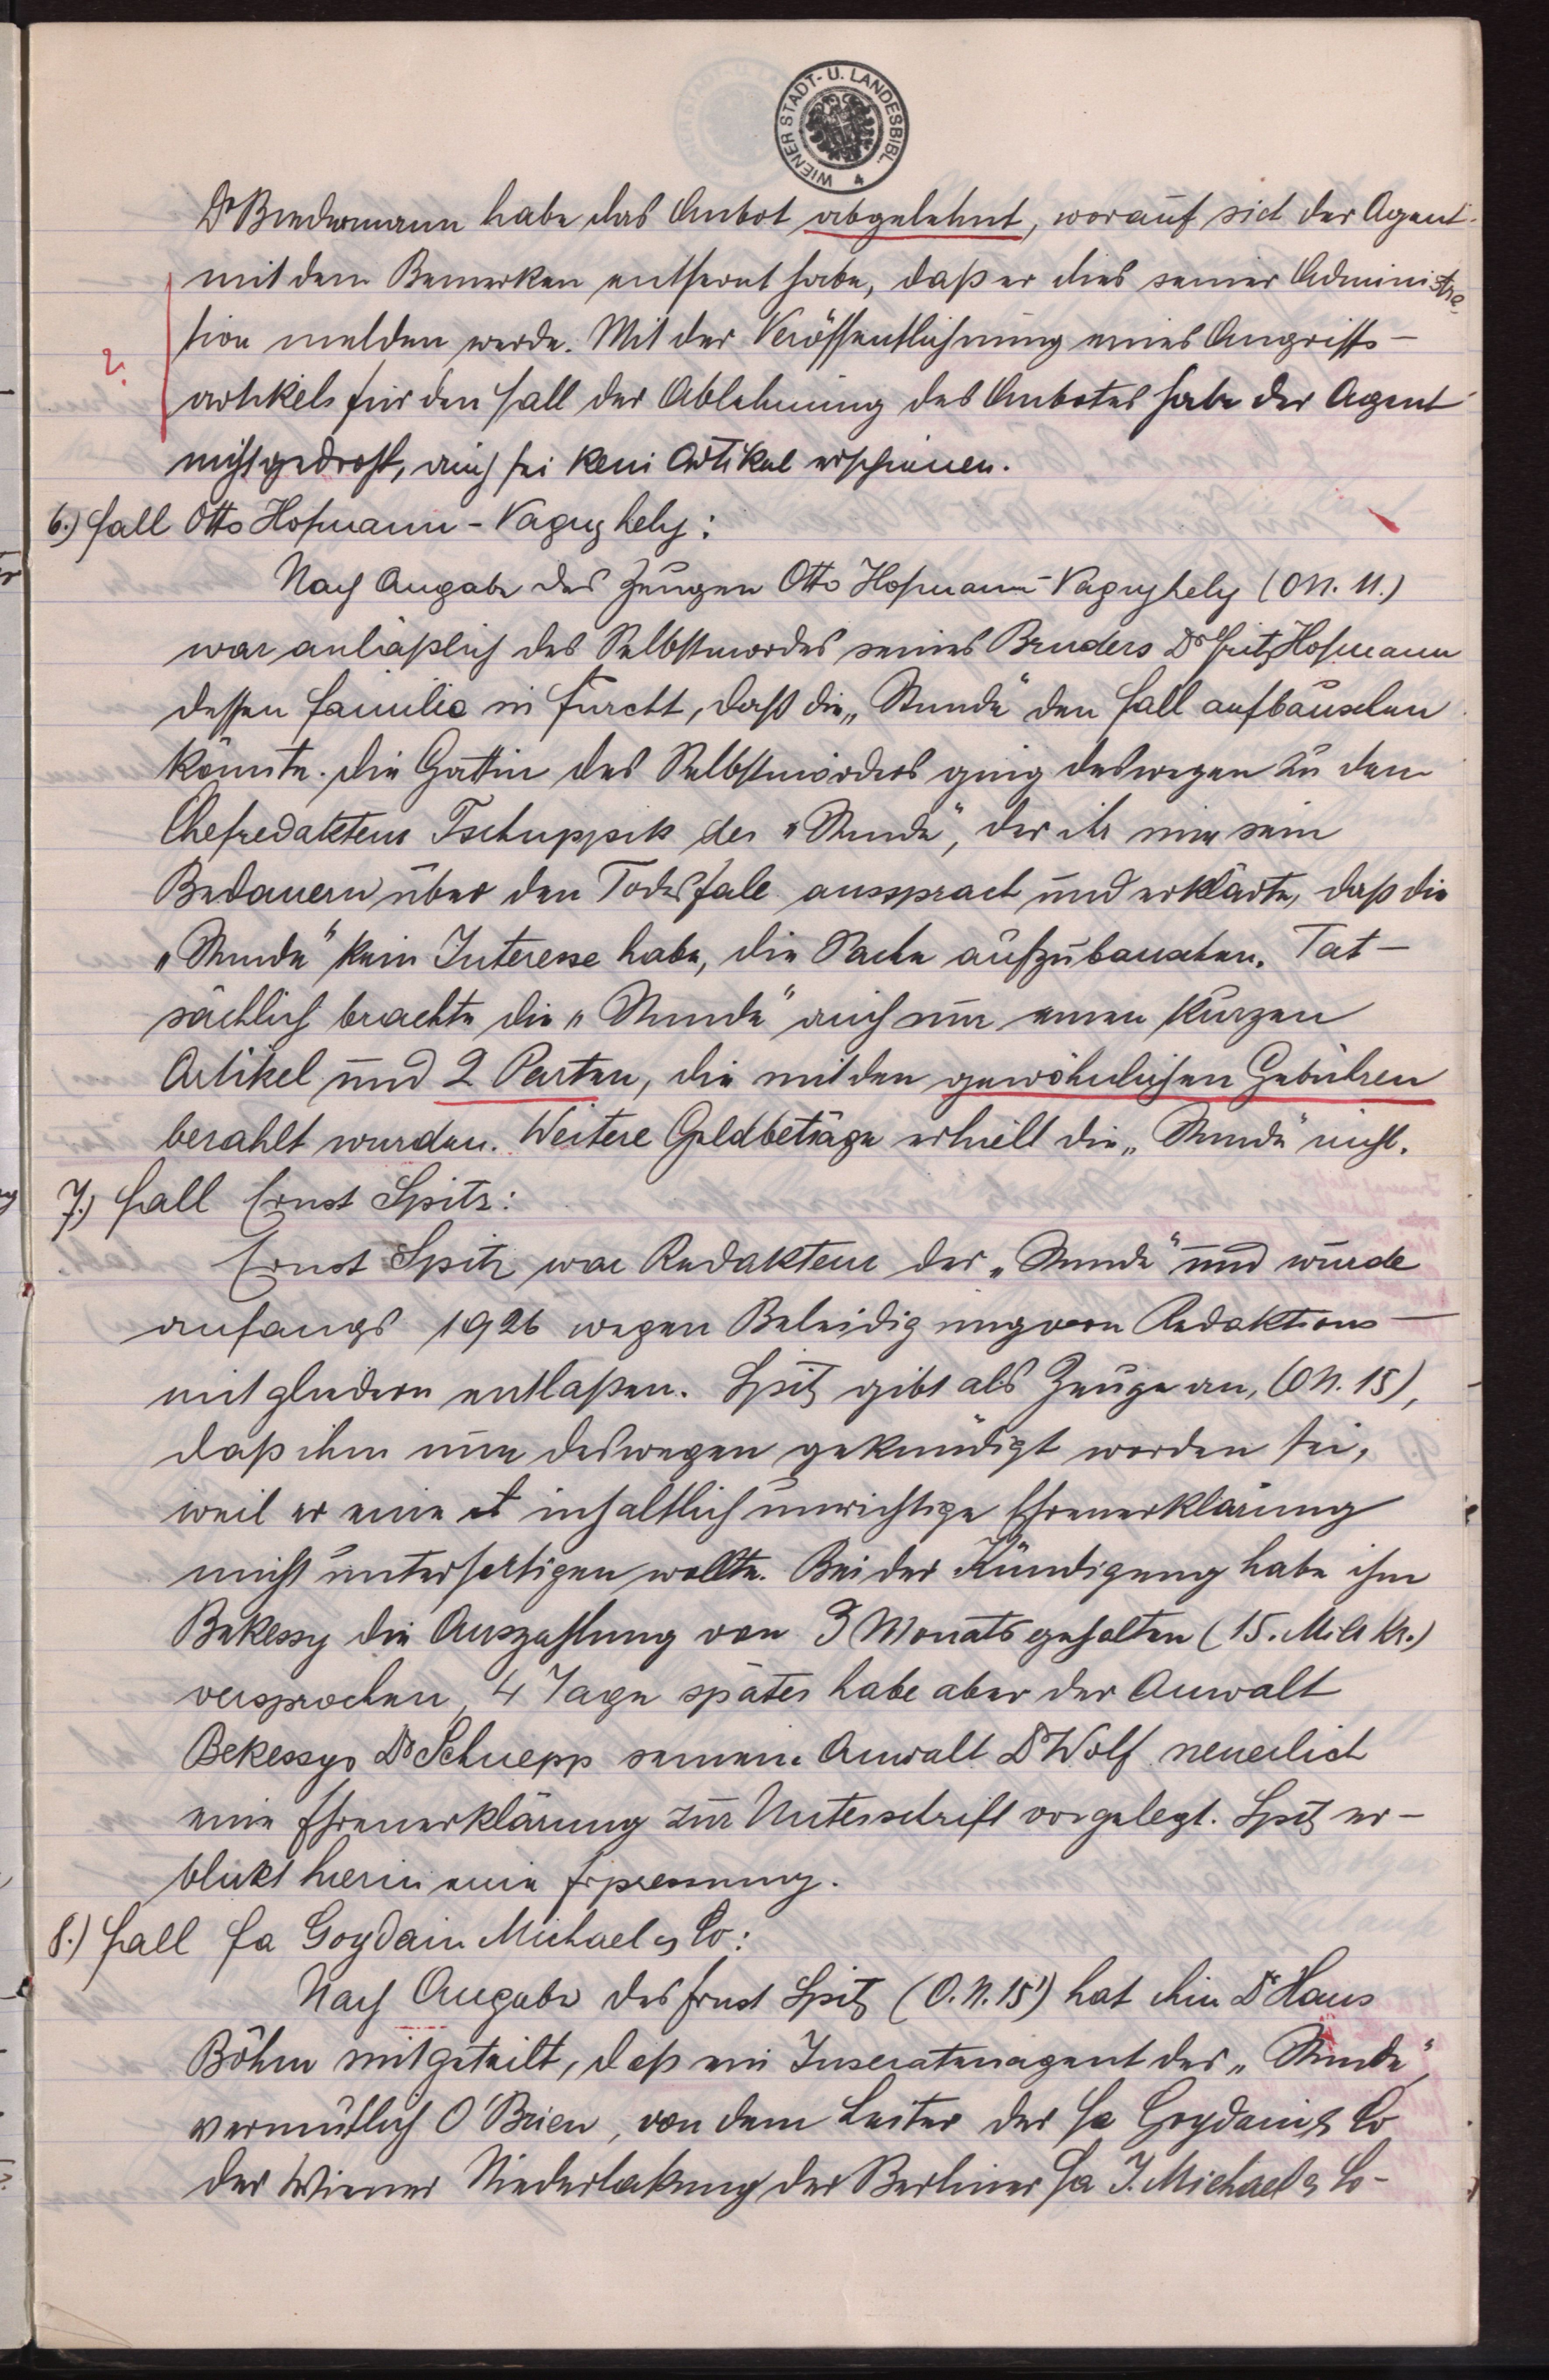 WIENER STADT- U. LANDESBIBL. 4
Dr Biedermann habe das Anbot abgelehnt, worauf sich der Agent
mit dem Bemerken entfernt habe, daß er dies seiner Administra-
tion melden werde. Mit der Veröffentlichung eines Angriffs-
artikels für den Fall der Ablehnung des Anbotes habe der Agent
nicht gedroht, auch sei kein Artikel erschienen.
6.) Fall Otto Hofmann-Vagujhely:
Nach Angabe des Zeugen Otto Hofmann-Vagujhely (ON. 11.)
war anläßlich des Selbstmordes seines Bruders Dr Fritz Hofmann
dessen Familie in Furcht, daß die „Stunde" den Fall aufbauschen
könnte. Die Gattin des Selbstmörders ging deswegen zu dem
Chefredakteur Tschuppik der „Stunde", der ihr nur sein
Bedauern über den Todesfall aussprach und erklärte, daß die
„Stunde" kein Interesse habe, die Sache aufzubauschen. Tat-
sächlich brachte die „Stunde" auch nur einen kurzen
Artikel und 2 Parten, die mit den gewöhnlichen Gebühren
bezahlt wurden. Weitere Geldbeträge erhielt die „Stunde" nicht.
7.) Fall Ernst Spitz:
Ernst Spitz war Redakteur der „Stunde" und wurde
anfangs 1926 wegen Beleidigung von Redaktions-
mitgliedern entlaßen. Spitz gibt als Zeuge an, (ON. 15),
daß ihm nur deswegen gekündigt worden sei,
weil er eine inhaltlich unrichtige Ehrenerklärung
nicht unterfertigen wollte. Bei der Kündigung habe ihm
Bekessy die Auszahlung von 3 Monatsgehalten (15. Mill Kr.)
versprochen, 4 Tage später habe aber der Anwalt
Bekessys Dr Schnepp seinem Anwalt Dr Wolf neuerlich
eine Ehrenerklärung zur Unterschrift vorgelegt. Spitz er-
blickt hierin eine Erpressung.
8.) Fall Fa Goydain Michael & Co:
Nach Angabe des Ernst Spitz (O.N. 15) hat ihm Dr Hans
Böhm mitgeteilt, daß ein Inseratenagent der „Stunde",
vermutlich O'Brien, von dem Leiter der Fa Goydain & Co
der Wiener Niederlaßung der Berliner Fa J. Michael & Co-